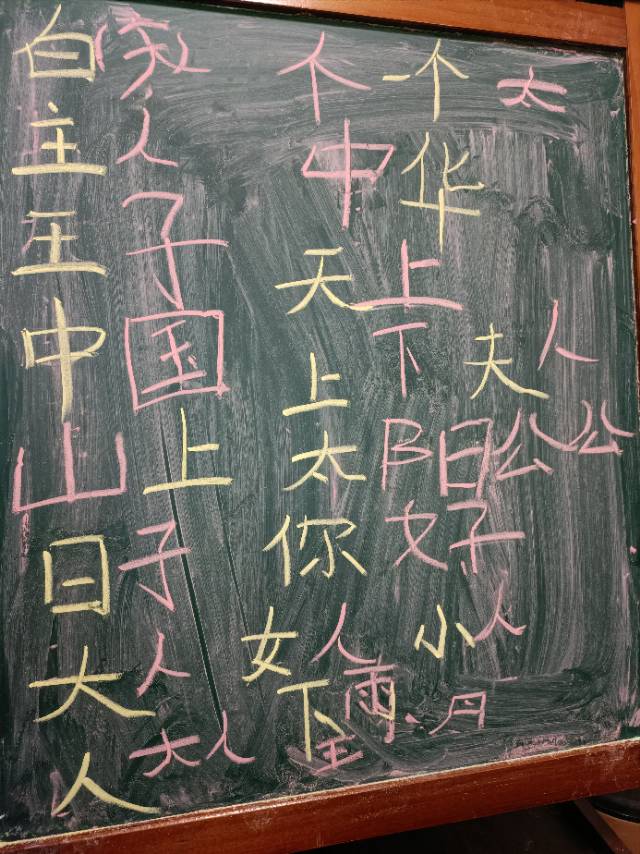 白
个 一个 太
主人
中华
王子
天上
中国
下 夫人
上
山上
太阳 公公
日子
你好
大人
女人 小人
下雨 月
人 大人